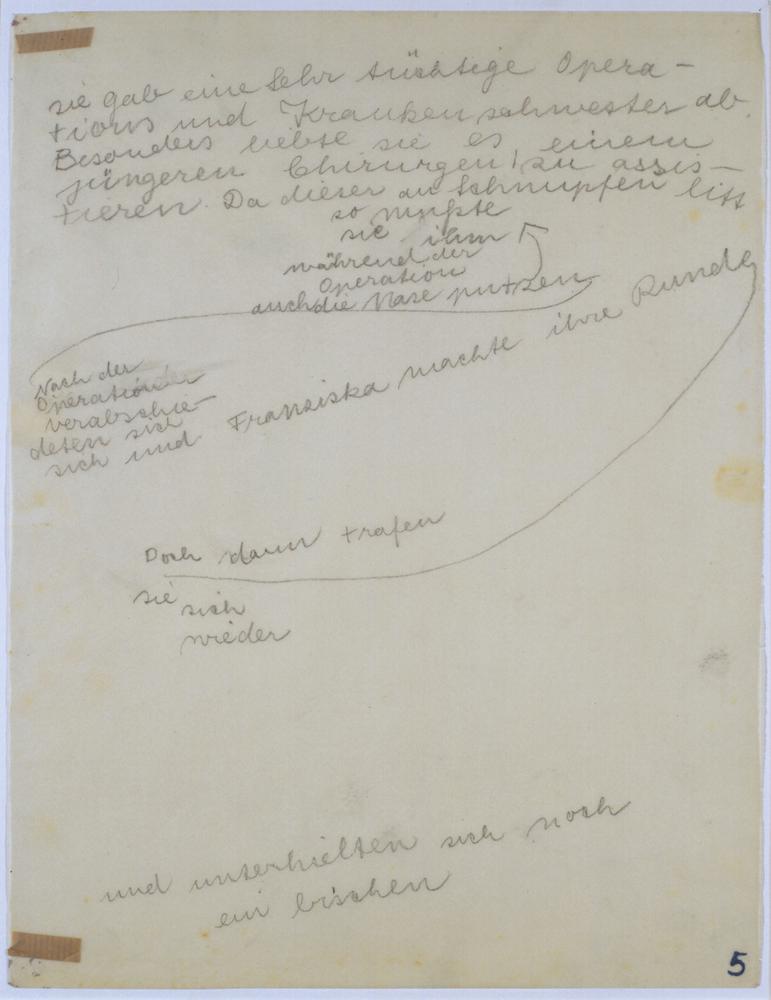 sie gab eine sehr tüchtige Opera-
tions und Krankenschwester ab.
Besonders liebte sie es, einem
jüngeren Chirurgen, zu assis-
tieren. Da dieser an Schnupfen litt
so mußte
sie ihm
während der
Operation
auch die Nase putzen
Nach der
Operation
verabschie-
deten sich
sich und Franziska machte ihre Runde
Doch dann trafen
sie sich
wieder
und unterhielten sich noch
ein bischen
5